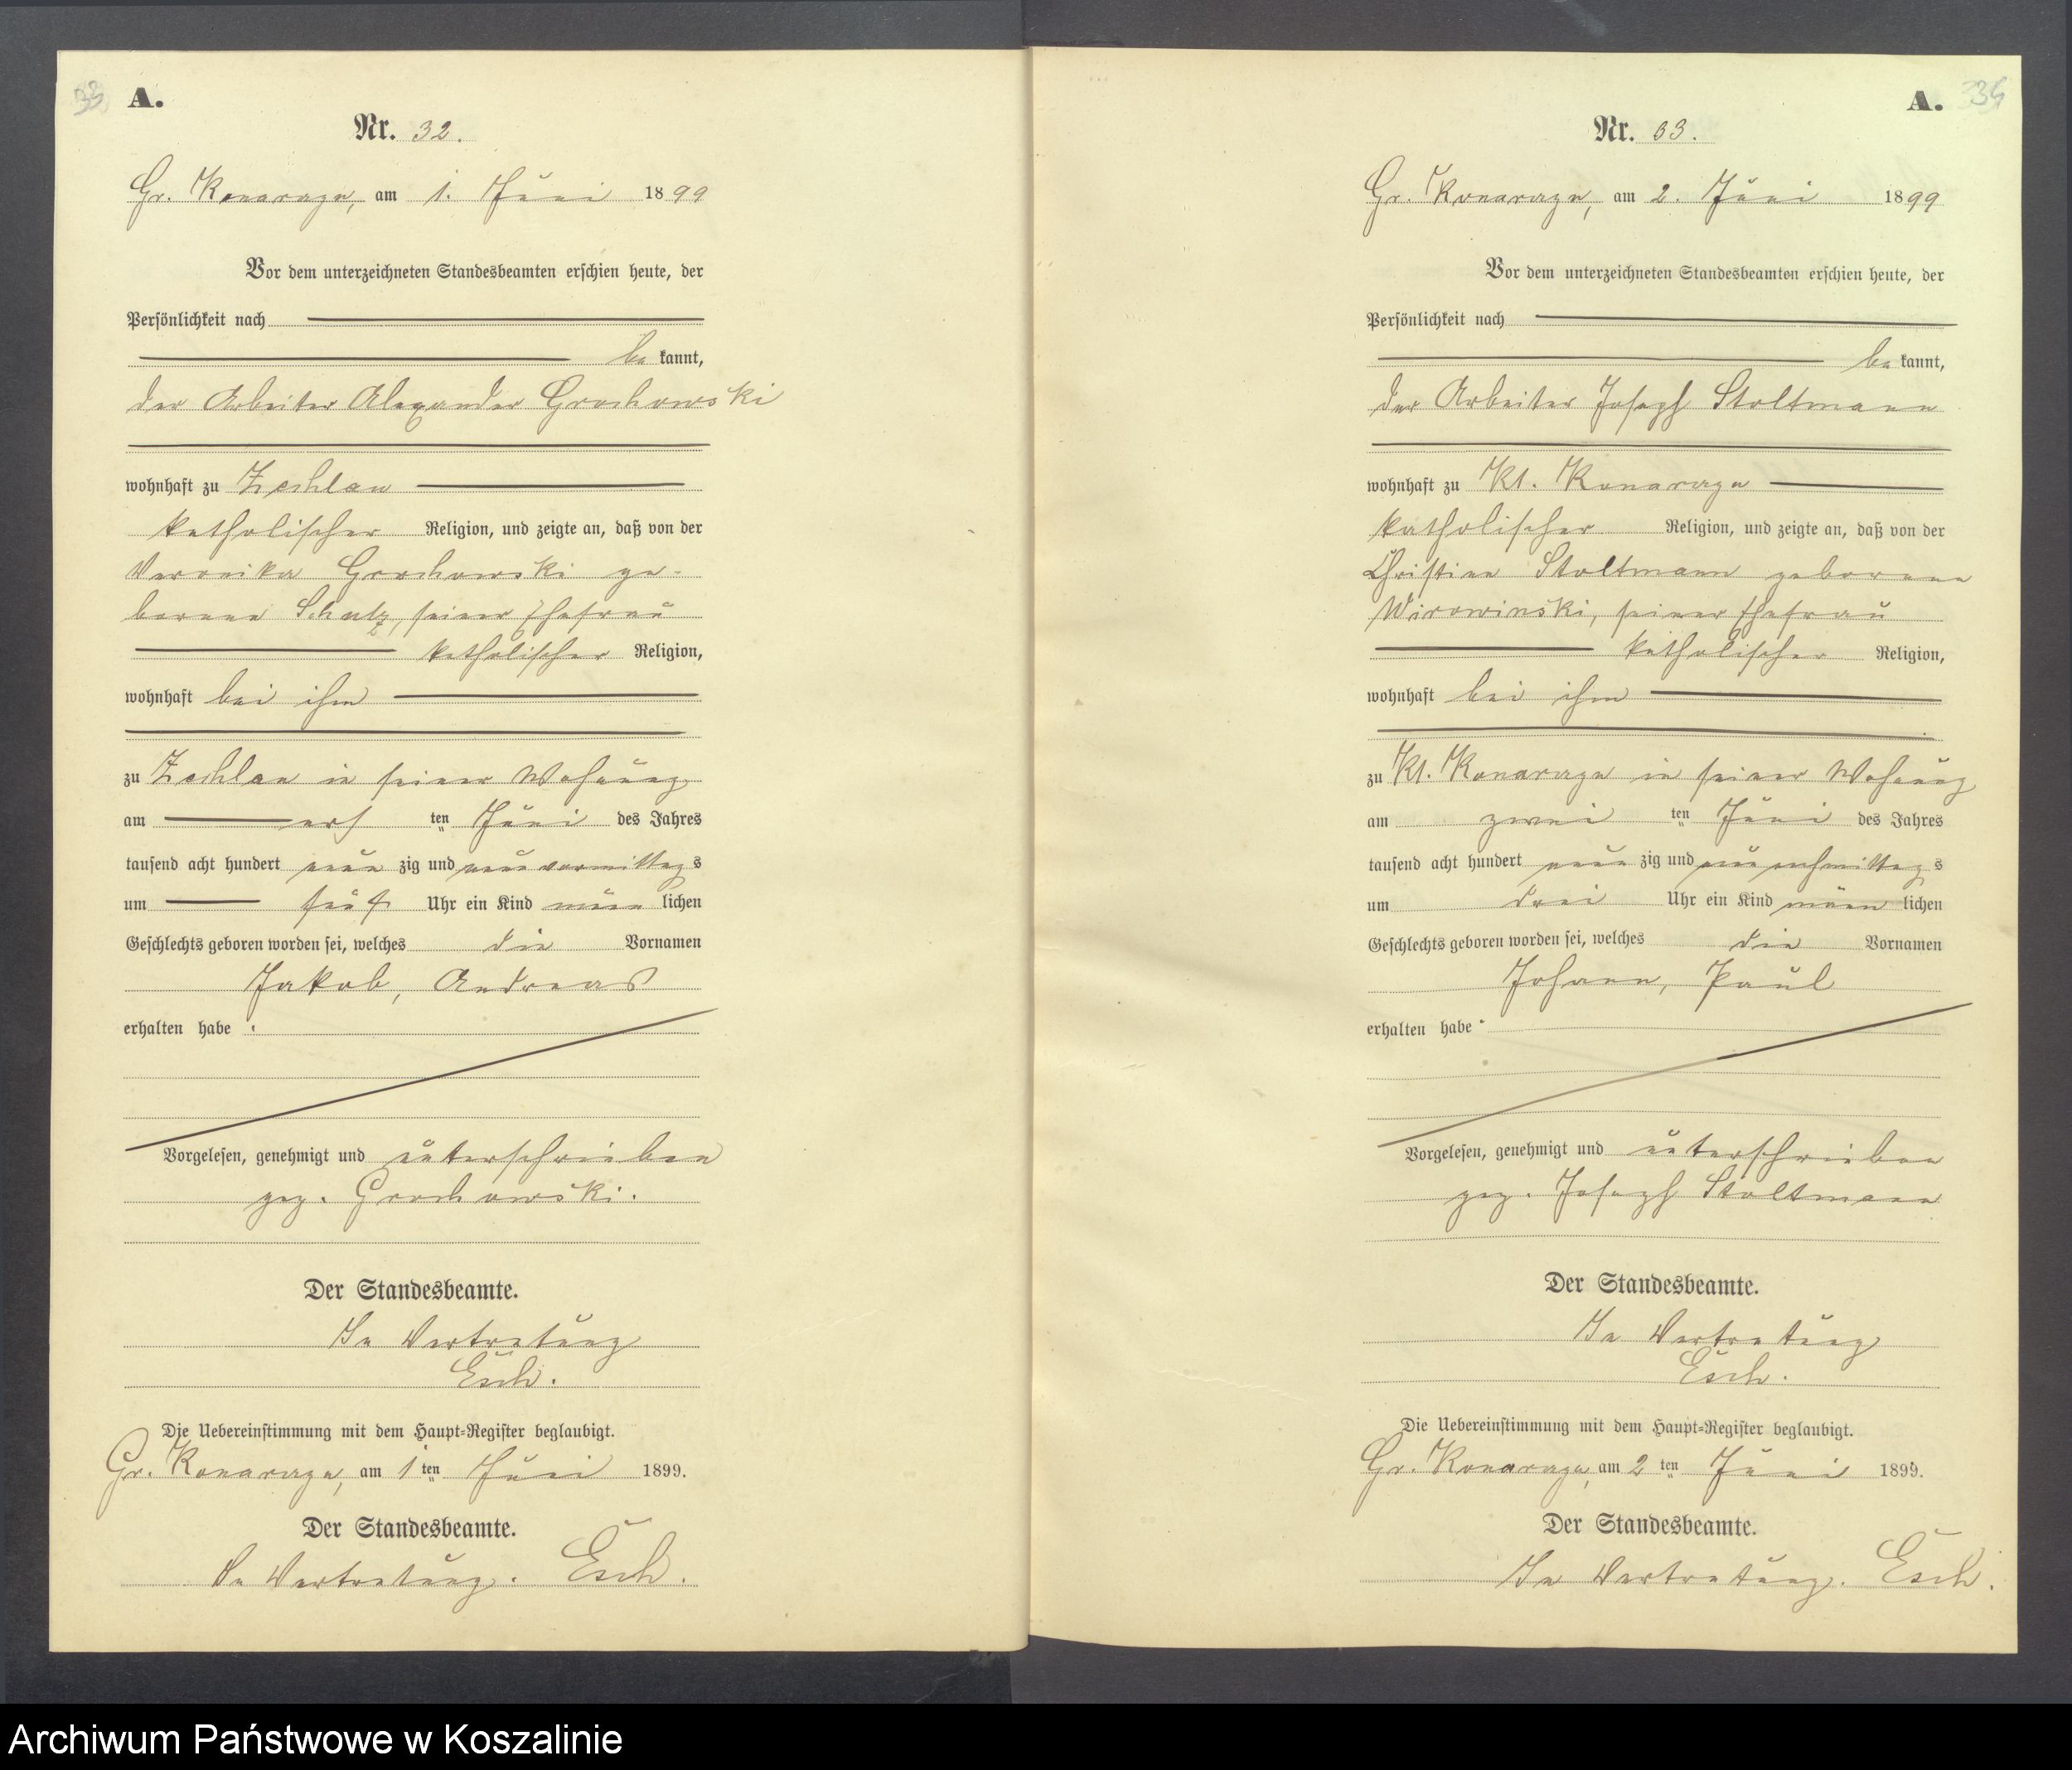 A.
Nr. 32.
Gr. Konarzyn, am 1. Juni 1899
Vor dem unterzeichneten Standesbeamten erschien heute, der
Persönlichkeit nach
be kannt,
der Arbeiter Alexander Grochowski
wohnhaft zu Zechlau
katholischer Religion, und zeigte an, daß von der
Veronika Grochowski ge-
borene Schulz, seiner Ehefrau
katholischer Religion,
wohnhaft bei ihm
zu Zechlau in seiner Wohnung
am ers ten Juni des Jahres
tausend acht hundert neun zig und neun vormittag s
um fünf Uhr ein Kind männ lichen
Geschlechts geboren worden sei, welches die Vornamen
Jakob, Andreas
erhalten habe .
Vorgelesen, genehmigt und unterschrieben
gez. Grochowski.
Der Standesbeamte.
In Vertretung
Esch.
Die Uebereinstimmung mit dem Haupt-Register beglaubigt.
Gr. Konarzyn, am 1 ten Juni 1899.
Der Standesbeamte.
In Vertretung. Esch.
A. 34
Nr. 33.
Gr. Konarzyn, am 2. Juni 1899
Vor dem unterzeichneten Standesbeamten erschien heute, der
Persönlichkeit nach
be kannt,
der Arbeiter Joseph Stoltmann
wohnhaft zu Kl. Konarzyn
katholischer Religion, und zeigte an, daß von der
Christine Stoltmann geborene
Wirowinski, seiner Ehefrau
katholischer Religion,
wohnhaft bei ihm
zu Kl. Konarzyn in seiner Wohnung
am zwei ten Juni des Jahres
tausend acht hundert neun zig und neun nachmittag s
um drei Uhr ein Kind männ lichen
Geschlechts geboren worden sei, welches die Vornamen
Johann, Paul
erhalten habe .
Vorgelesen, genehmigt und unterschrieben
gez. Joseph Stoltmann
Der Standesbeamte.
In Vertretung
Esch.
Die Uebereinstimmung mit dem Haupt-Register beglaubigt.
Gr. Konarzyn, am 2 ten Juni 1899.
Der Standesbeamte.
In Vertretung. Esch.
Archiwum Państwowe w Koszalinie